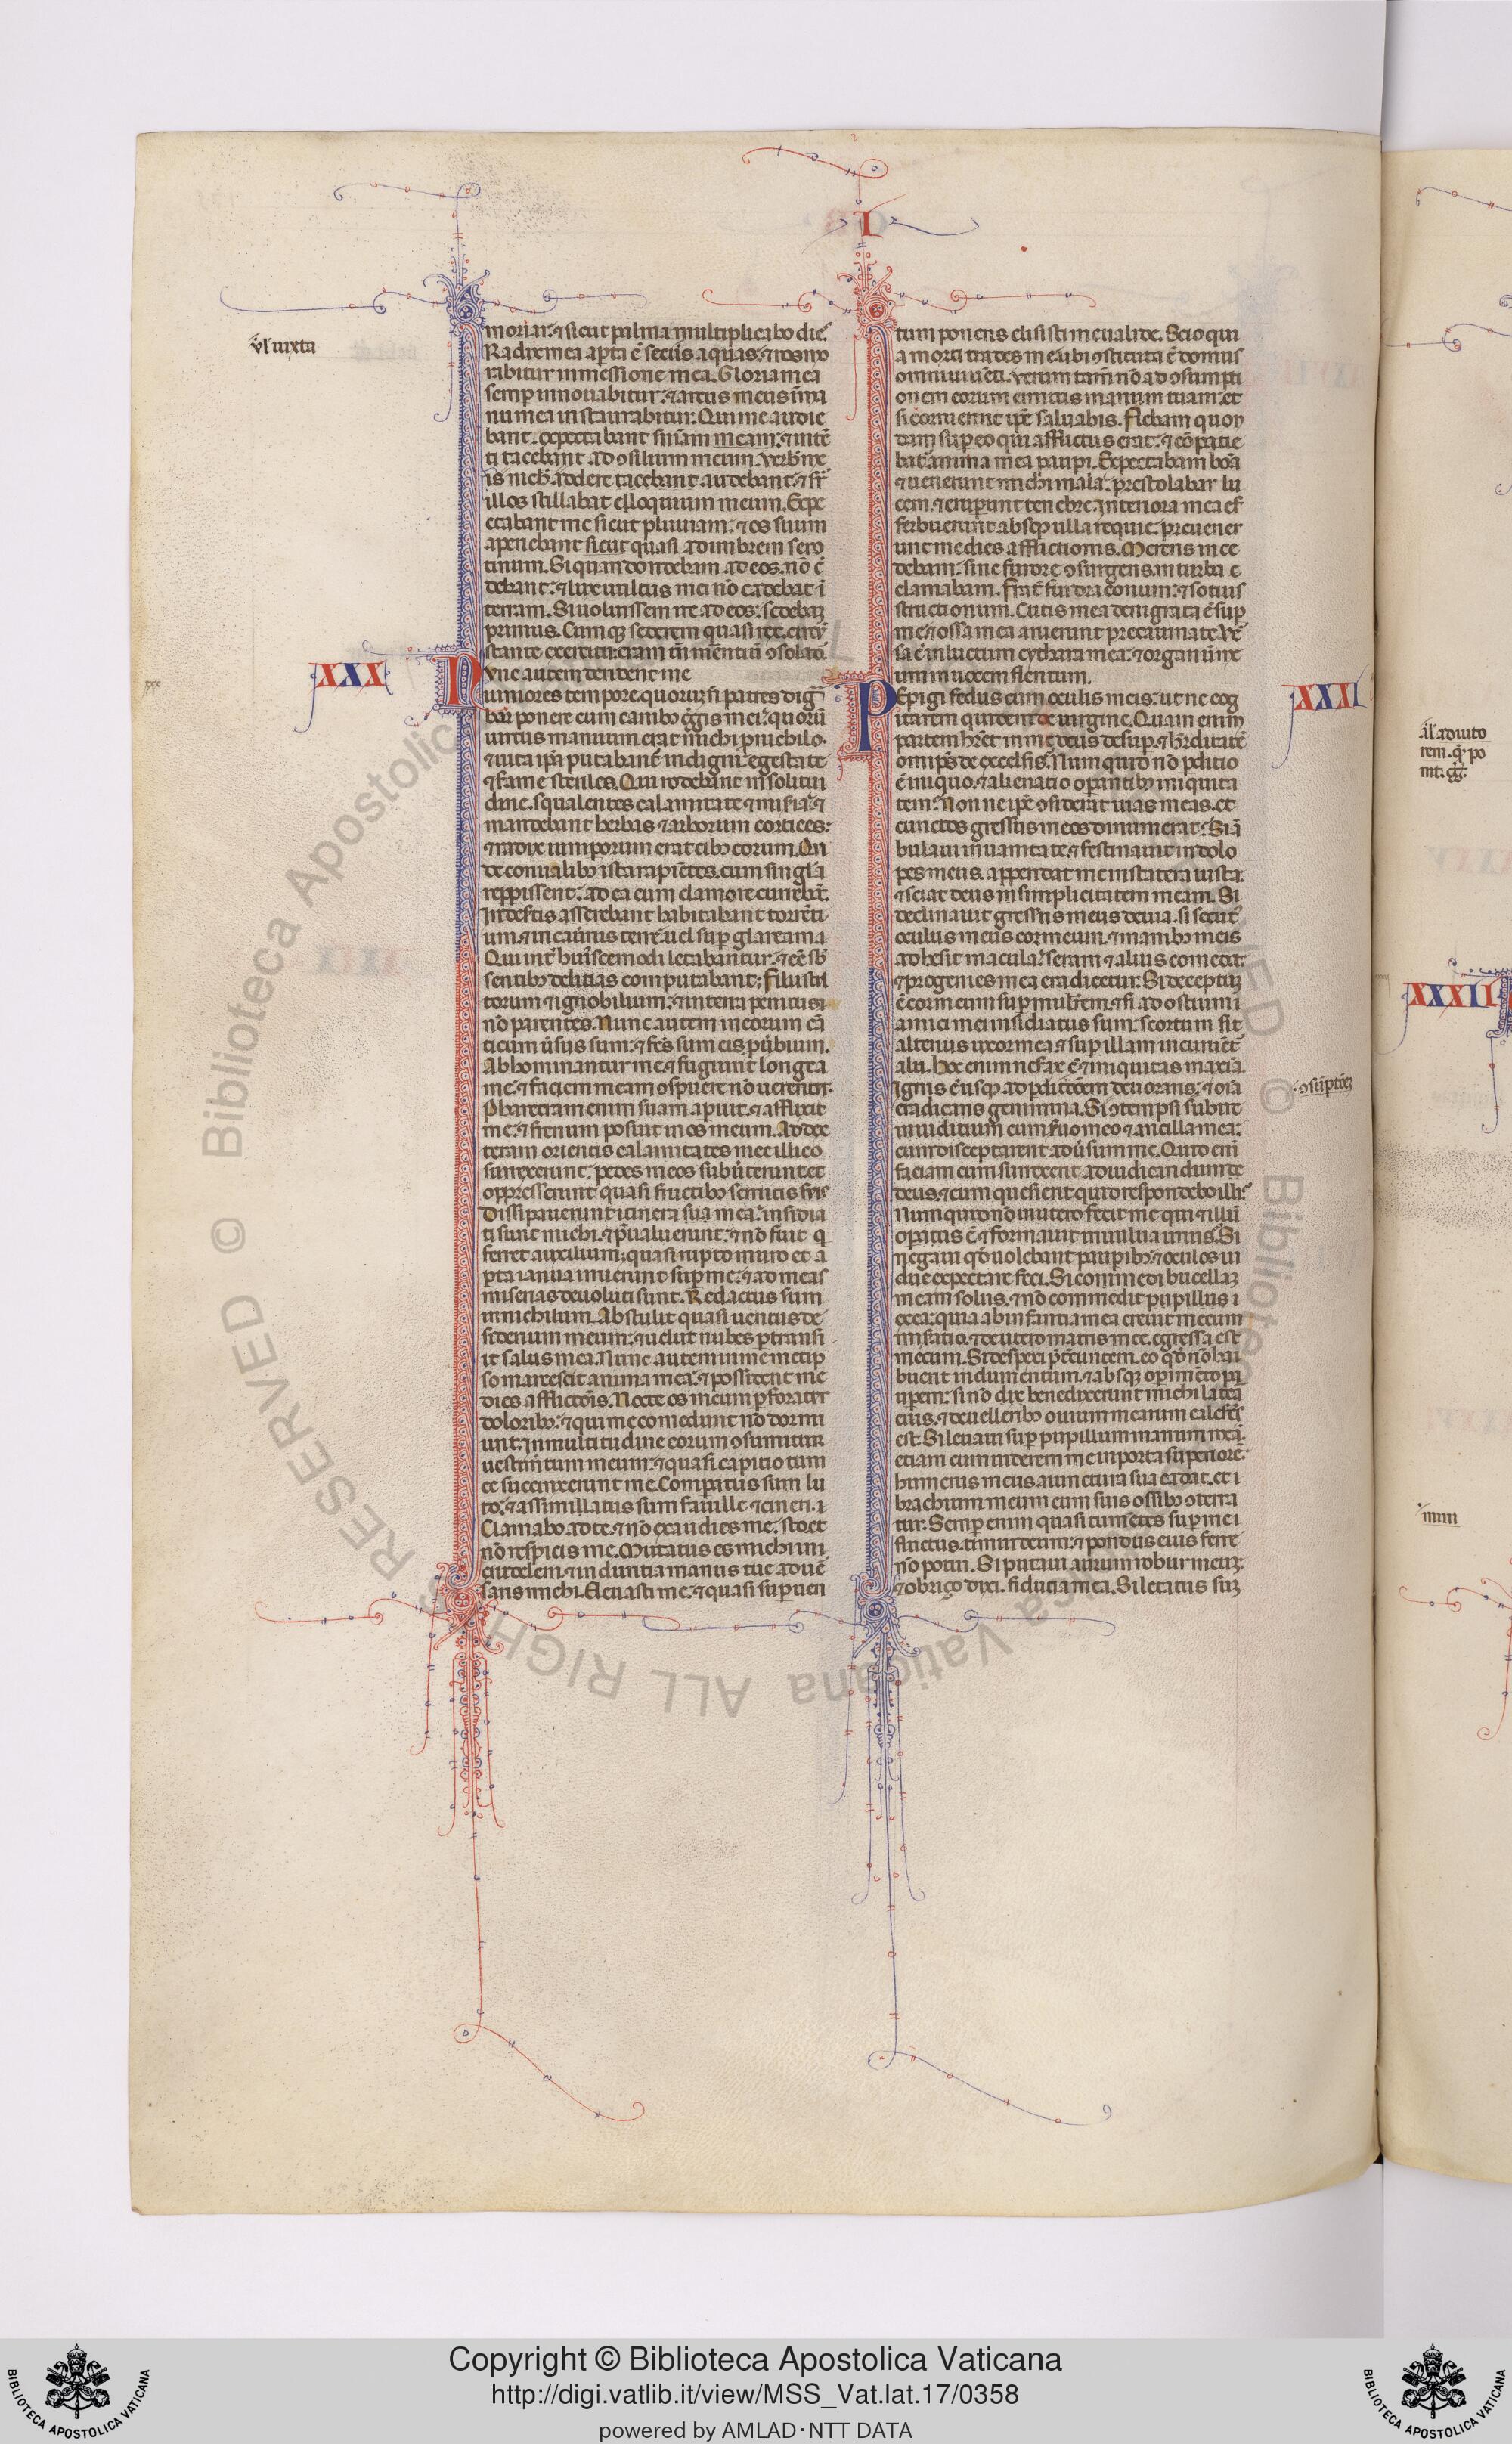 I
vl' iuxta
moriar: ⁊ sicut palma multiplicabo dies
Radix mea apta ē secus aquas: ⁊ ros mo
rabitur in messione mea. Gloria mea
semp innouabitur: ⁊ arcus meus ī ma
nu mea instaurabitur. Qui me audie
bant. expectabant snīam meam: ⁊ intē
ti tacebant ad ↄsilium meum. Verbis me
is nich addere tacebant audebant: ⁊ sr̄
illos stillabat elloquium meum. Expe
ctabant me sicut pluuiam: ⁊ os suum
aperiebant sicut quasi ad imbrem sero
tinum. Si quando ridebam ad eos. nō c̄
debant: ⁊ lux uultus mei nō cadebat ī
terram. Si uoluissem ire ad eos: sedebaz
primus. Cum qȝ sederem quasi rex. circū
stante exercitu: eram tn̄ mentiū ↄsolator
XXX
Nunc autem derident me
iuniores tempore. quorum n̄ patres dig
bar ponere cum canibȝ ggis mei: quorū
uirtus manuum erat michi p nichilo.
⁊ uita ipa putabant̄ indigni. egestate
⁊ fame steriles. Qui rodebant in solitu
dine. squalentes calamitate ⁊ miseria: ⁊
mandebant herbas ⁊ arborum cortices:
⁊ radix iuniporum erat cibȝ eorum. Qui
de conuallibȝ ista rapiētes. cum singla
reppissent: ad ea cum clamore currebāt.
In desertis asserebant habitabant torrēti
um. ⁊ in cauernis terre: uel sup glaream.
Qui int̄ huiuscemodi letabantur. ⁊ ēē sb̄
sentibȝ delitias computabant: filii stul
torum ⁊ ignobilium: ⁊ in terra penitus
nō parentes. Nunc autem in eorum cā
ticum ūsus sum: ⁊ fcs sum eis puerbium.
Abhominantur me. ⁊ fugiunt longe a
me: ⁊ faciem meam ↄspuere nō uerentur.
Pharetram enim suam apuit. ⁊ afflixit
me: ⁊ frenum posuit in os meum. Ad dex
teram orientis calamitates mee illico
surrexerunt: pedes meos subūterunt. et
oppresserunt quasi fluctibȝ semitis suis
Dissipauerunt itinera sua mea: insidia
ti sunt michi. ⁊ pualuerunt: ⁊ nō fuit q
ferret auxilium: quasi rupto muro et a
pta ianua irruerunt sup me: ⁊ ad meas
miserias deuoluti sunt. Redactus sum
in nichilum. Abstulit quasi uentus de
siderium meum: ⁊ uelut nubes ptransi
it salus mea. Nunc autem in me metip
so marcescit anima mea. ⁊ possident me
dies afflictōis. Nocte os meum pforatur
doloribȝ: ⁊ qui me comedunt nō dormi
unt. In multitudine eorum ↄsumitur
uestimtum meum: ⁊ quasi capitio tuni
ce succinxerunt me. Compatus sum lu
to: ⁊ assimillatus sum fauille ⁊ cineri.
Clamabo ad te. ⁊ nō exaudies me: sto. et
nō respicis me. Mutatus es michi in
crudelem: ⁊ in duritia manus tue aduē
saris michi. Eleuasti me: ⁊ quasi sup uen
tum ponens elisisti me ualide. Scio qui
a morti trades me: ubi ↄstituta ē domus
omni uiuēti. Verum tam̄ nō ad ↄsumpti
onem eorum emittis manum tuam: et
si corruerint ipe saluabis. Flebam quon
dam sup eo qui afflictus erat: ⁊ cōpatie
bat̄ anima mea paupi. Expectabam bōa
⁊ uenerunt michi mala: prestolabar lu
cem. ⁊ eruperunt tenebre. Interiora mea ef
ferbuerunt absqȝ ulla requie: preuener
unt me dies afflictionis. Merens ince
debam: sine furore ↄsurgens. in turba c
clamabam. Frat̄ fui draconum: ⁊ sotius
structionum. Cutis mea denigrata ē sup
me. ⁊ ossa mea aruerunt pre caumate. Ve
sa ē in luctum cythara mea: ⁊ organū me
um in uocem flentum.
XXXI
PEpigi fedus cum oculis meis: ut ne cog
itarem quidem de uirgine. Quam enim
partem hr̄et in me deus desup. ⁊ hr̄ditatē
omips de excelsis. Num quid nō pditio
ē iniquo. ⁊ alienatio opantibȝ iniquita
tem: Non ne ipe ↄsiderat uias meas. et
cunctos gressus meos dinumerat: Si ā
bulaui in uanitate. ⁊ festinauit in dolo
pes meus. appendat me in statera iusta:
⁊ sciat deus in simplicitatem meam. Si
declinauit gressus meus de uia. si secut̄
oculus meus cor meum. ⁊ manibȝ meis
adhesit macula: seram ⁊ alius comedat:
⁊ progenies mea eradicetur. Si deceptuz
ē cor meum sup mulr̄em. ⁊ si ad ostium
amici mei insidiatus sum: scortum sit
alterius uxor mea. ⁊ sup illam incuruēt̄
alii. Hoc enim nefas ē ⁊ iniquitas maxīa.
Ignis ē usqȝ ad pditiōem deuorans. ⁊ oīa
ↄsūptōeȝ
eradicans genimina. Si ↄtempsi subire
iuuditium cum ẜuo meo ⁊ ancilla mea:
cum disceptarent adūsum me. Quid eni
faciam cum surrexerit ad iudicandum
deus. ⁊ cum quesierit quid respondebo illi:
Num quid nō in utero fecit me qui ⁊ illū
opatus ē ⁊ formauit in uulua unus. Si
negaui qd uolebant paupibȝ: ⁊ oculos ui
due expectare feci. Si commedi bucellaz
meam solus. ⁊ nō commedit pupillus
ex ea: quia ab infantia mea creuit mecum
misatio. ⁊ de utero matris mee. egressa est
mecum. Si despexi pt̄euntem. eo qd nō hab
buerit indumentum. ⁊ absqȝ opimēto pa
upem: si nō dix̄ benedixerunt michi latera
eius. ⁊ de uelleribȝ ouium mearum calefcs
est. Si leuaui sup pupillum manum meā.
etiam cum uiderem me in porta superiorē:
humerus meus a iunctura sua cadat. et
brachium meum cum suis ossibȝ ↄterra
tur. Semp enim quasi tumētes sup me
fluctus. timui deum: ⁊ pondus eius ferre
nō potui. Si putaui aurum robur meuz:
⁊ obrizo dixi. fiducia mea. Si letatus suȝ
al' adiuto
rem. qr po
nit. gg.
XXXII
Copyright © Biblioteca Apostolica Vaticana
http://digi.vatlib.it/view/MSS_Vat.lat.17/0358
powered by AMLAD·NTT DATA
BIBLIOTECA APOSTOLICA VATICANA
BIBLIOTECA APOSTOLICA VATICANA
© Biblioteca Apostolica Vaticana ALL RIGHTS RESERVED